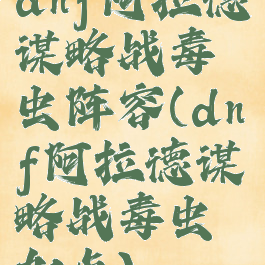 dnf阿拉德
谋略战毒
虫阵容(dn
f阿拉德谋
略战毒虫